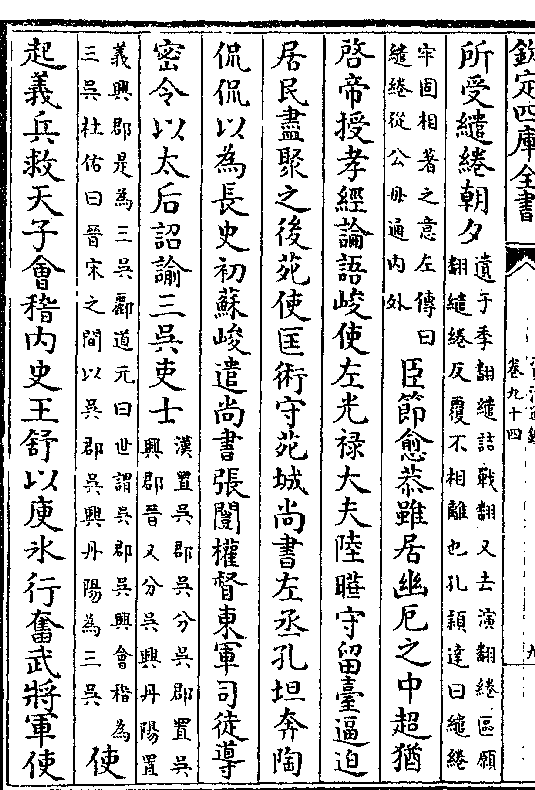 欽定四庫全書
卷九十四
九
所受繾綣朝夕
遺于季翻繾詰戰翻又去演翻綣區願
翻繾綣反覆不相離也孔穎達曰繾綣
牢固相著之意左傳曰
繾綣從公毋通内外
臣節愈恭雖居幽厄之中超猶
啓帝授孝經論語峻使左光禄大夫陸瞱守留臺逼迫
居民盡聚之後苑使匡術守苑城尚書左丞孔坦奔陶
侃侃以為長史初蘇峻遣尚書張闓權督東軍司徒導
密令以太后詔諭三吳吏士
漢置吳郡吳分吳郡置吳
興郡晉又分吳興丹陽置
義興郡是為三吳酈道元曰世謂吳郡吳興會稽為
三吳杜佑曰晉宋之間以吳郡吳興丹陽為三吳
使
起義兵救天子會稽内史王舒以庾氷行奮武將軍使